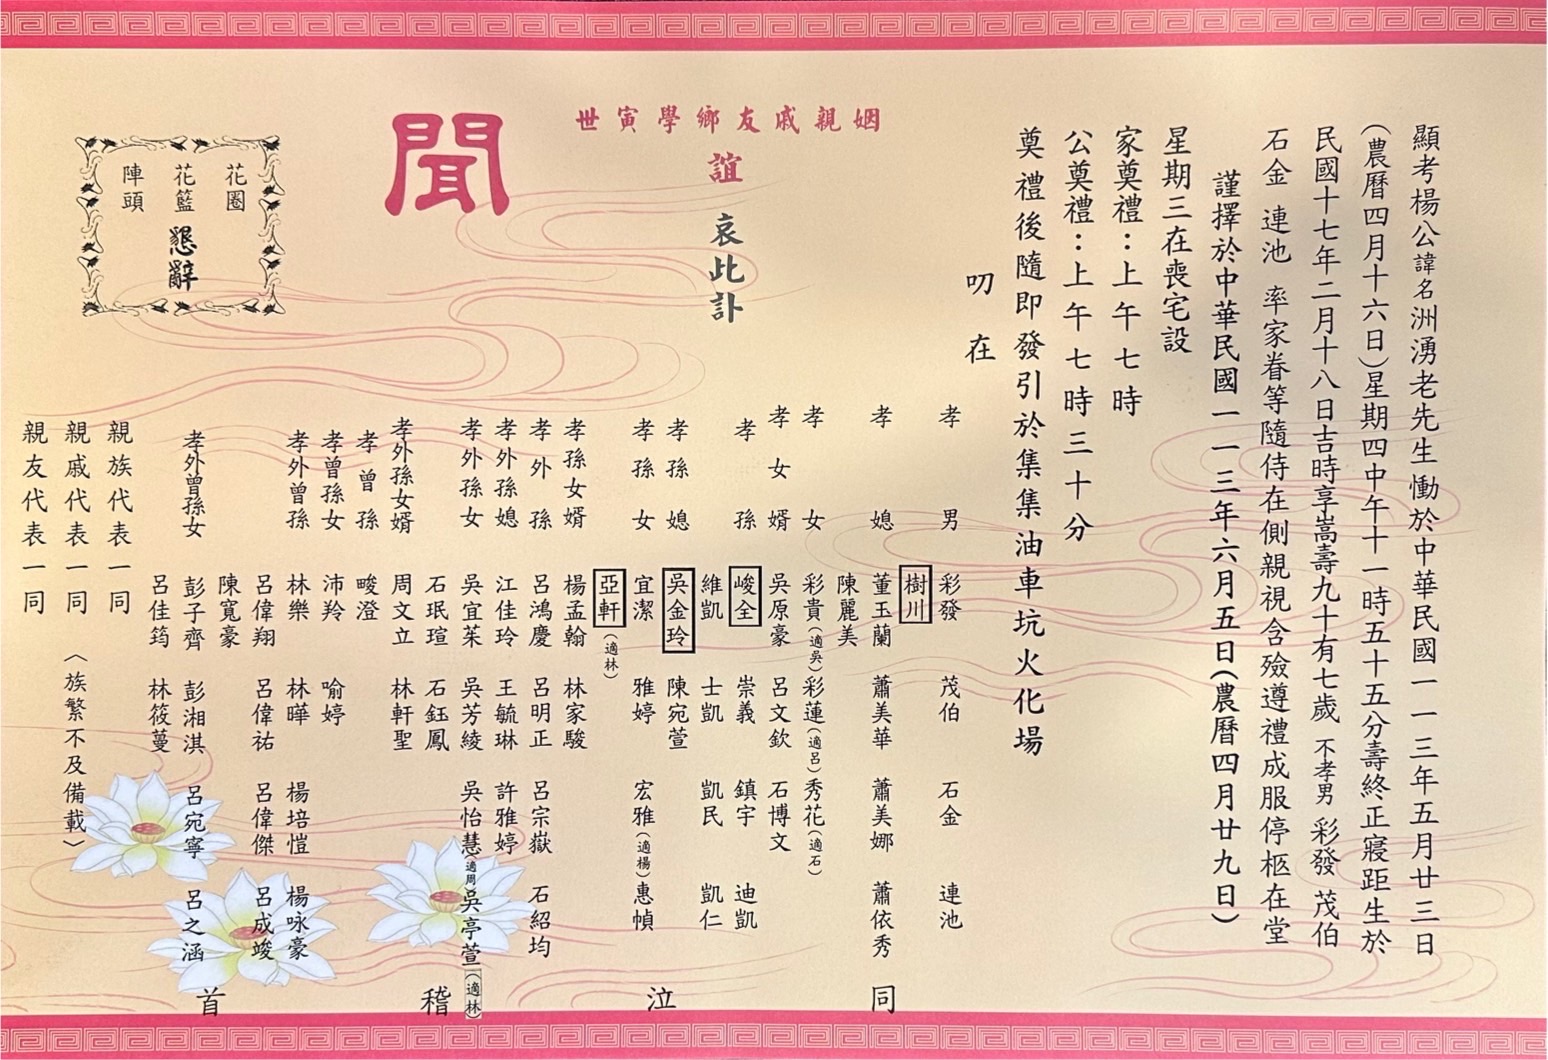 顯考楊公諱名洲湧老先生慟於中華民國一一三年五月廿三日
(農曆四月十六日)星期四中午十一時五十五分壽終正寢距生於
民國十七年二月十八日吉時享嵩壽九十有七歲 不孝男 彩發 茂伯
石金 連池 率家眷等隨侍在側親視含殮遵禮成服停柩在堂
謹擇於中華民國一一三年六月五日(農曆四月廿九日)
星期三在喪宅設
家奠禮：上午七時
公奠禮：上午七時三十分
奠禮後隨即發引於集集油車坑火化場
叨在
姻親戚友鄉學寅世
誼
哀此訃
聞
孝男 彩發 茂伯 石金 連池
樹川
孝媳 董玉蘭 蕭美華 蕭美娜 蕭依秀
陳麗美
孝女 彩貴(適吳) 彩蓮(適呂) 秀花(適石)
孝女婿 吳原豪 呂文欽 石博文
孝孫 峻全 崇義 鎮宇 迪凱
維凱 士凱 凱民 凱仁
孝孫媳 吳金玲 陳宛萱
孝孫女 宜潔 雅婷 宏雅(適楊) 惠幀
亞軒(適林)
孝孫女婿 楊孟翰 林家駿
孝外孫 呂鴻慶 呂明正 呂宗嶽 石紹均
孝外孫媳 江佳玲 王毓琳 許雅婷
孝外孫女 吳宜茱 吳芳綾 吳怡慧(適周) 吳亭萱(適林)
石珉瑄 石鈺鳳
孝外孫女婿 周文立 林軒聖
孝曾孫 畯澄
孝曾孫女 沛羚 喻婷
孝外曾孫 林樂 林曄 楊培愷 楊咏豪
呂偉翔 呂偉祐 呂偉傑 呂成竣
陳寬豪
孝外曾孫女 彭子齊 彭湘淇 呂宛寧 呂之涵
呂佳筠 林筱蔓
同泣稽首
親族代表一同
親戚代表一同 〈族繁不及備載〉
親友代表一同
花圈
花籃 懇辭
陣頭